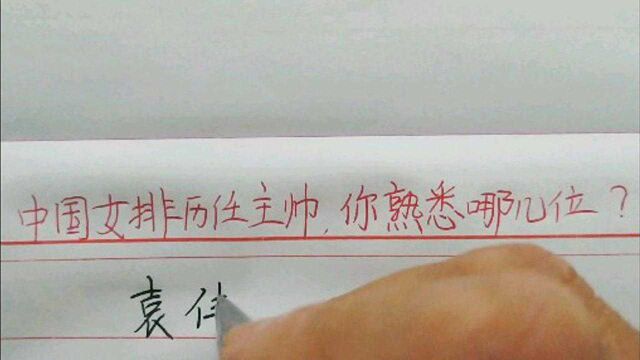 中国女排历任主帅,你熟悉哪几位?
袁